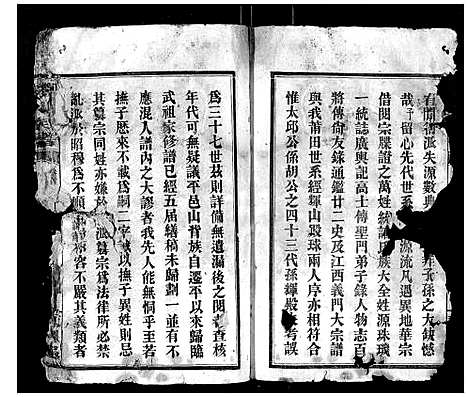 有聞舊派失源數典
哉予留心先代世系 源流凡遇異地華宗
借閱宗牒證之萬姓統譜氏族大全姓源珠璣
一統誌廣輿記高士傳聖門弟子錄人物志百
將傳倚友錄通鑑廿二史及江西義門大宗譜
與我莆田世系經輝山毅球兩人序亦相符合
惟太邱公係胡公之四十三代孫輝毅 考誤
為三十七世茲則詳備無遺漏後之閱 查核
年代可無疑議平邑山背族自遷不以來歸臨
武祖家修譜已經五屆繕稿未歸劃一並有不
應混人譜內之大謬者我先人能無恫乎至若
撫子應來不載為嗣二字 以撫子異姓則忘
其纂宗同姓亦嫌於 派纂宗為法律所必禁
亂派於昭穆為不順 容不嚴其義類者